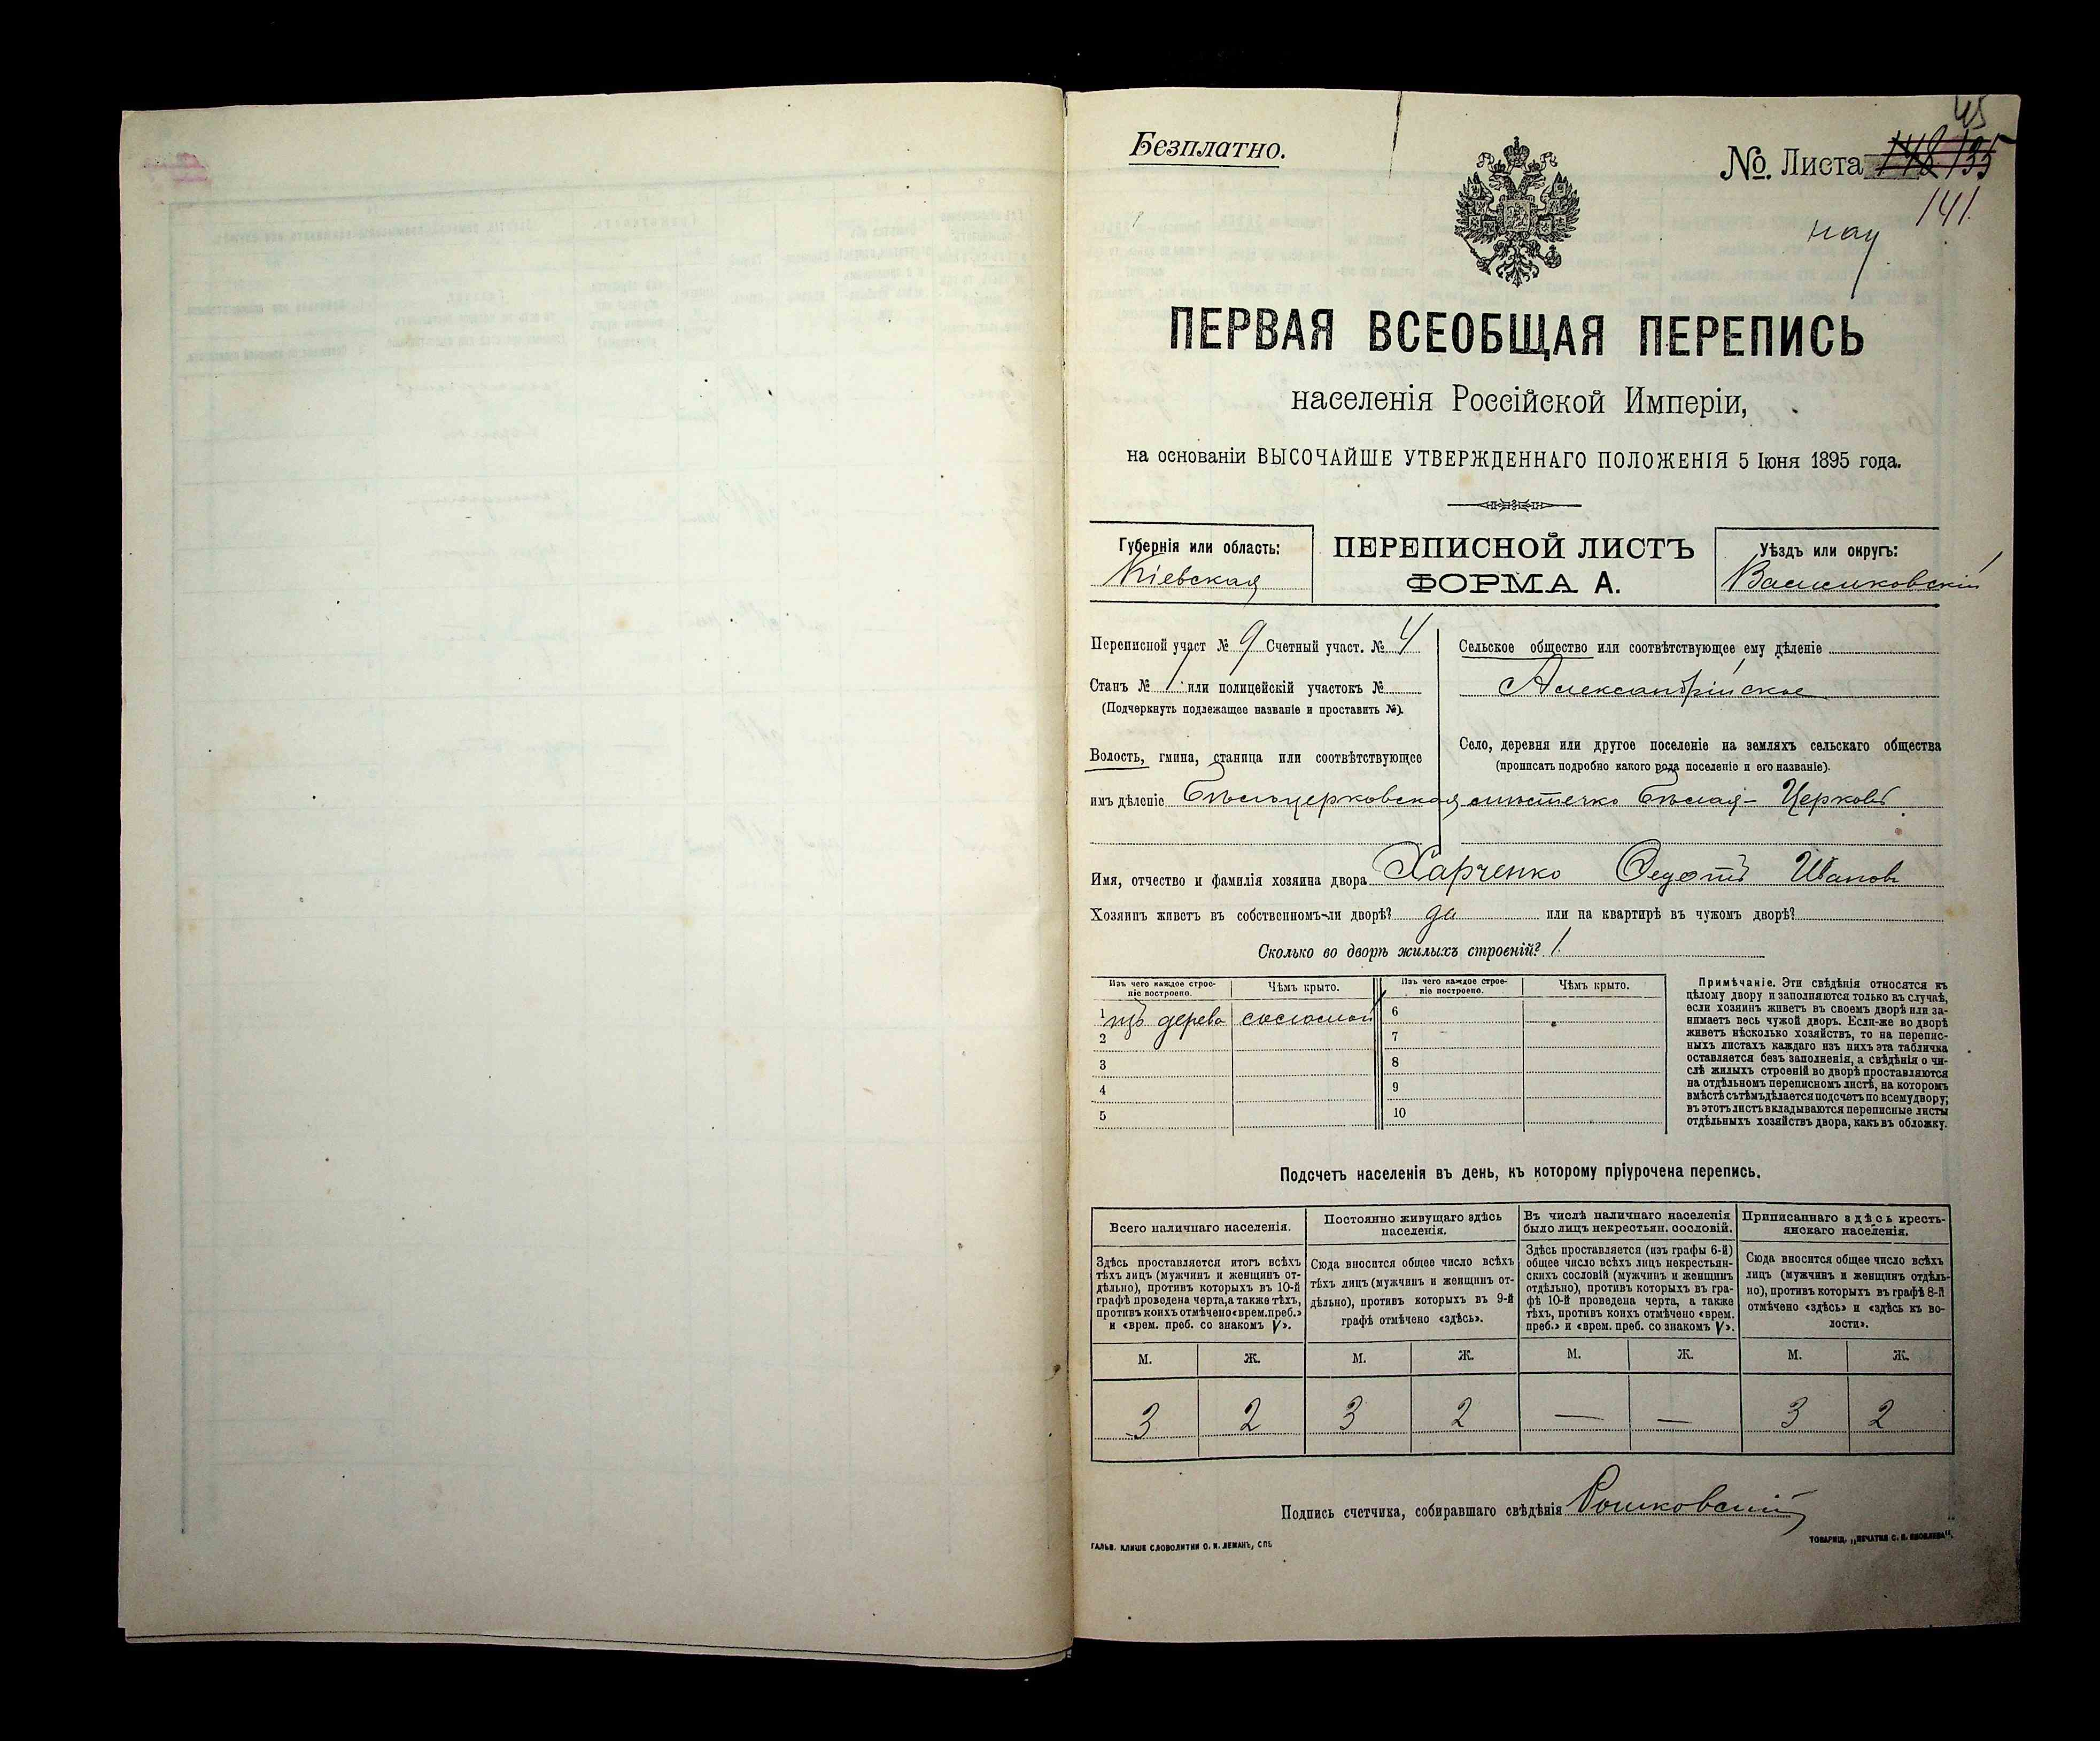 45
Безплатно.
№. Листа 148 135
141.
ПЕРВАЯ ВСЕОБЩАЯ ПЕРЕПИСЬ
населенія Россійской Имперіи,
на основаніи ВЫСОЧАЙШЕ УТВЕРЖДЕННАГО ПОЛОЖЕНІЯ 5 Іюня 1895 года.
Губернія или область:
Кіевская
ПЕРЕПИСНОЙ ЛИСТЪ
ФОРМА А.
Уѣздъ или округъ:
Васильковскій
Переписной участ № 9 Счетный участ. № 4
Станъ № 1 или полицейскій участокъ №
(Подчеркнуть подлежащее названіе и проставить №).
Волость, гмина, станица или соотвѣтствующее
имъ дѣленіе Бѣлоцерковская
Сельское общество или соотвѣтствующее ему дѣленіе
Александрійское
Село, деревня или другое поселеніе на земляхъ сельскаго общества
(прописать подробно какого рода поселеніе и его названіе).
мѣстечко Бѣлая-Церковь
Имя, отчество и фамилія хозяина двора Харченко Федотъ Иванов
Хозяинъ живетъ въ собственномъ-ли дворѣ? да или на квартирѣ въ чужомъ дворѣ?
Сколько во дворѣ жилыхъ строеній? 1.
Изъ чего каждое строе-
ніе построено.
Чѣмъ крыто.
Изъ чего каждое строе-
ніе построено.
Чѣмъ крыто.
1 изъ дерева соломой 6
2 7
3 8
4 9
5 10
Примѣчаніе. Эти свѣдѣнія относятся къ
цѣлому двору и заполняются только въ случаѣ,
если хозяинъ живетъ въ своемъ дворѣ или за-
нимаетъ весь чужой дворъ. Если-же во дворѣ
живетъ нѣсколько хозяйствъ, то на перепис-
ныхъ листахъ каждаго изъ нихъ эта табличка
оставляется безъ заполненія, а свѣдѣнія о чи-
слѣ жилыхъ строеній во дворѣ проставляются
на отдѣльномъ переписномъ листѣ, на которомъ
вмѣстѣ съ тѣмъ дѣлается подсчетъ по всему двору;
въ этотъ листъ вкладываются переписные листы
отдѣльныхъ хозяйствъ двора, какъ въ обложку.
Подсчетъ населенія въ день, къ которому пріурочена перепись.
Всего наличнаго населенія.
Здѣсь проставляется итогъ всѣхъ
тѣхъ лицъ (мужчинъ и женщинъ от-
дѣльно), противъ которыхъ въ 10-й
графѣ проведена черта, а также тѣхъ,
противъ коихъ отмѣчено «врем. преб.»
и «врем. преб. со знакомъ V».
Постоянно живущаго здѣсь
населенія.
Сюда вносится общее число всѣхъ
тѣхъ лицъ (мужчинъ и женщинъ от-
дѣльно), противъ которыхъ въ 9-й
графѣ отмѣчено «здѣсь».
Въ числѣ наличнаго населенія
было лицъ некрестьян. сословій.
Здѣсь проставляется (изъ графы 6-й)
общее число всѣхъ лицъ некрестьян-
скихъ сословій (мужчинъ и женщинъ
отдѣльно), противъ которыхъ въ гра-
фѣ 10-й проведена черта, а также
тѣхъ, противъ коихъ отмѣчено «врем.
преб.» и «врем. преб. со знакомъ V».
Приписаннаго здѣсь кресть-
янскаго населенія.
Сюда вносится общее число всѣхъ
лицъ (мужчинъ и женщинъ отдѣль-
но), противъ которыхъ въ графѣ 8-й
отмѣчено «здѣсь» и «здѣсь къ во-
лости».
М. Ж. М. Ж. М. Ж. М. Ж.
3 2 3 2 — — 3 2
Подпись счетчика, собиравшаго свѣдѣнія
ГАЛЬВ. КЛИШЕ СЛОВОЛИТНИ О. И. ЛЕМАНЪ, СПБ.
ТОВАРИЩ. „ПЕЧАТНЯ С. П. ЯКОВЛЕВА".